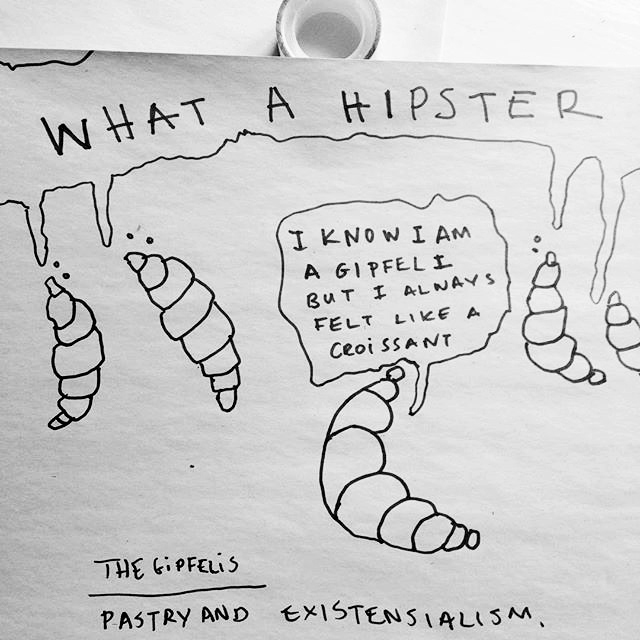 WHAT A HIPSTER
I KNOW I AM
A GIPFELI
BUT I ALWAYS
FELT LIKE A
CROISSANT
THE GIPFELIS
PASTRY AND EXISTENSIALISM.